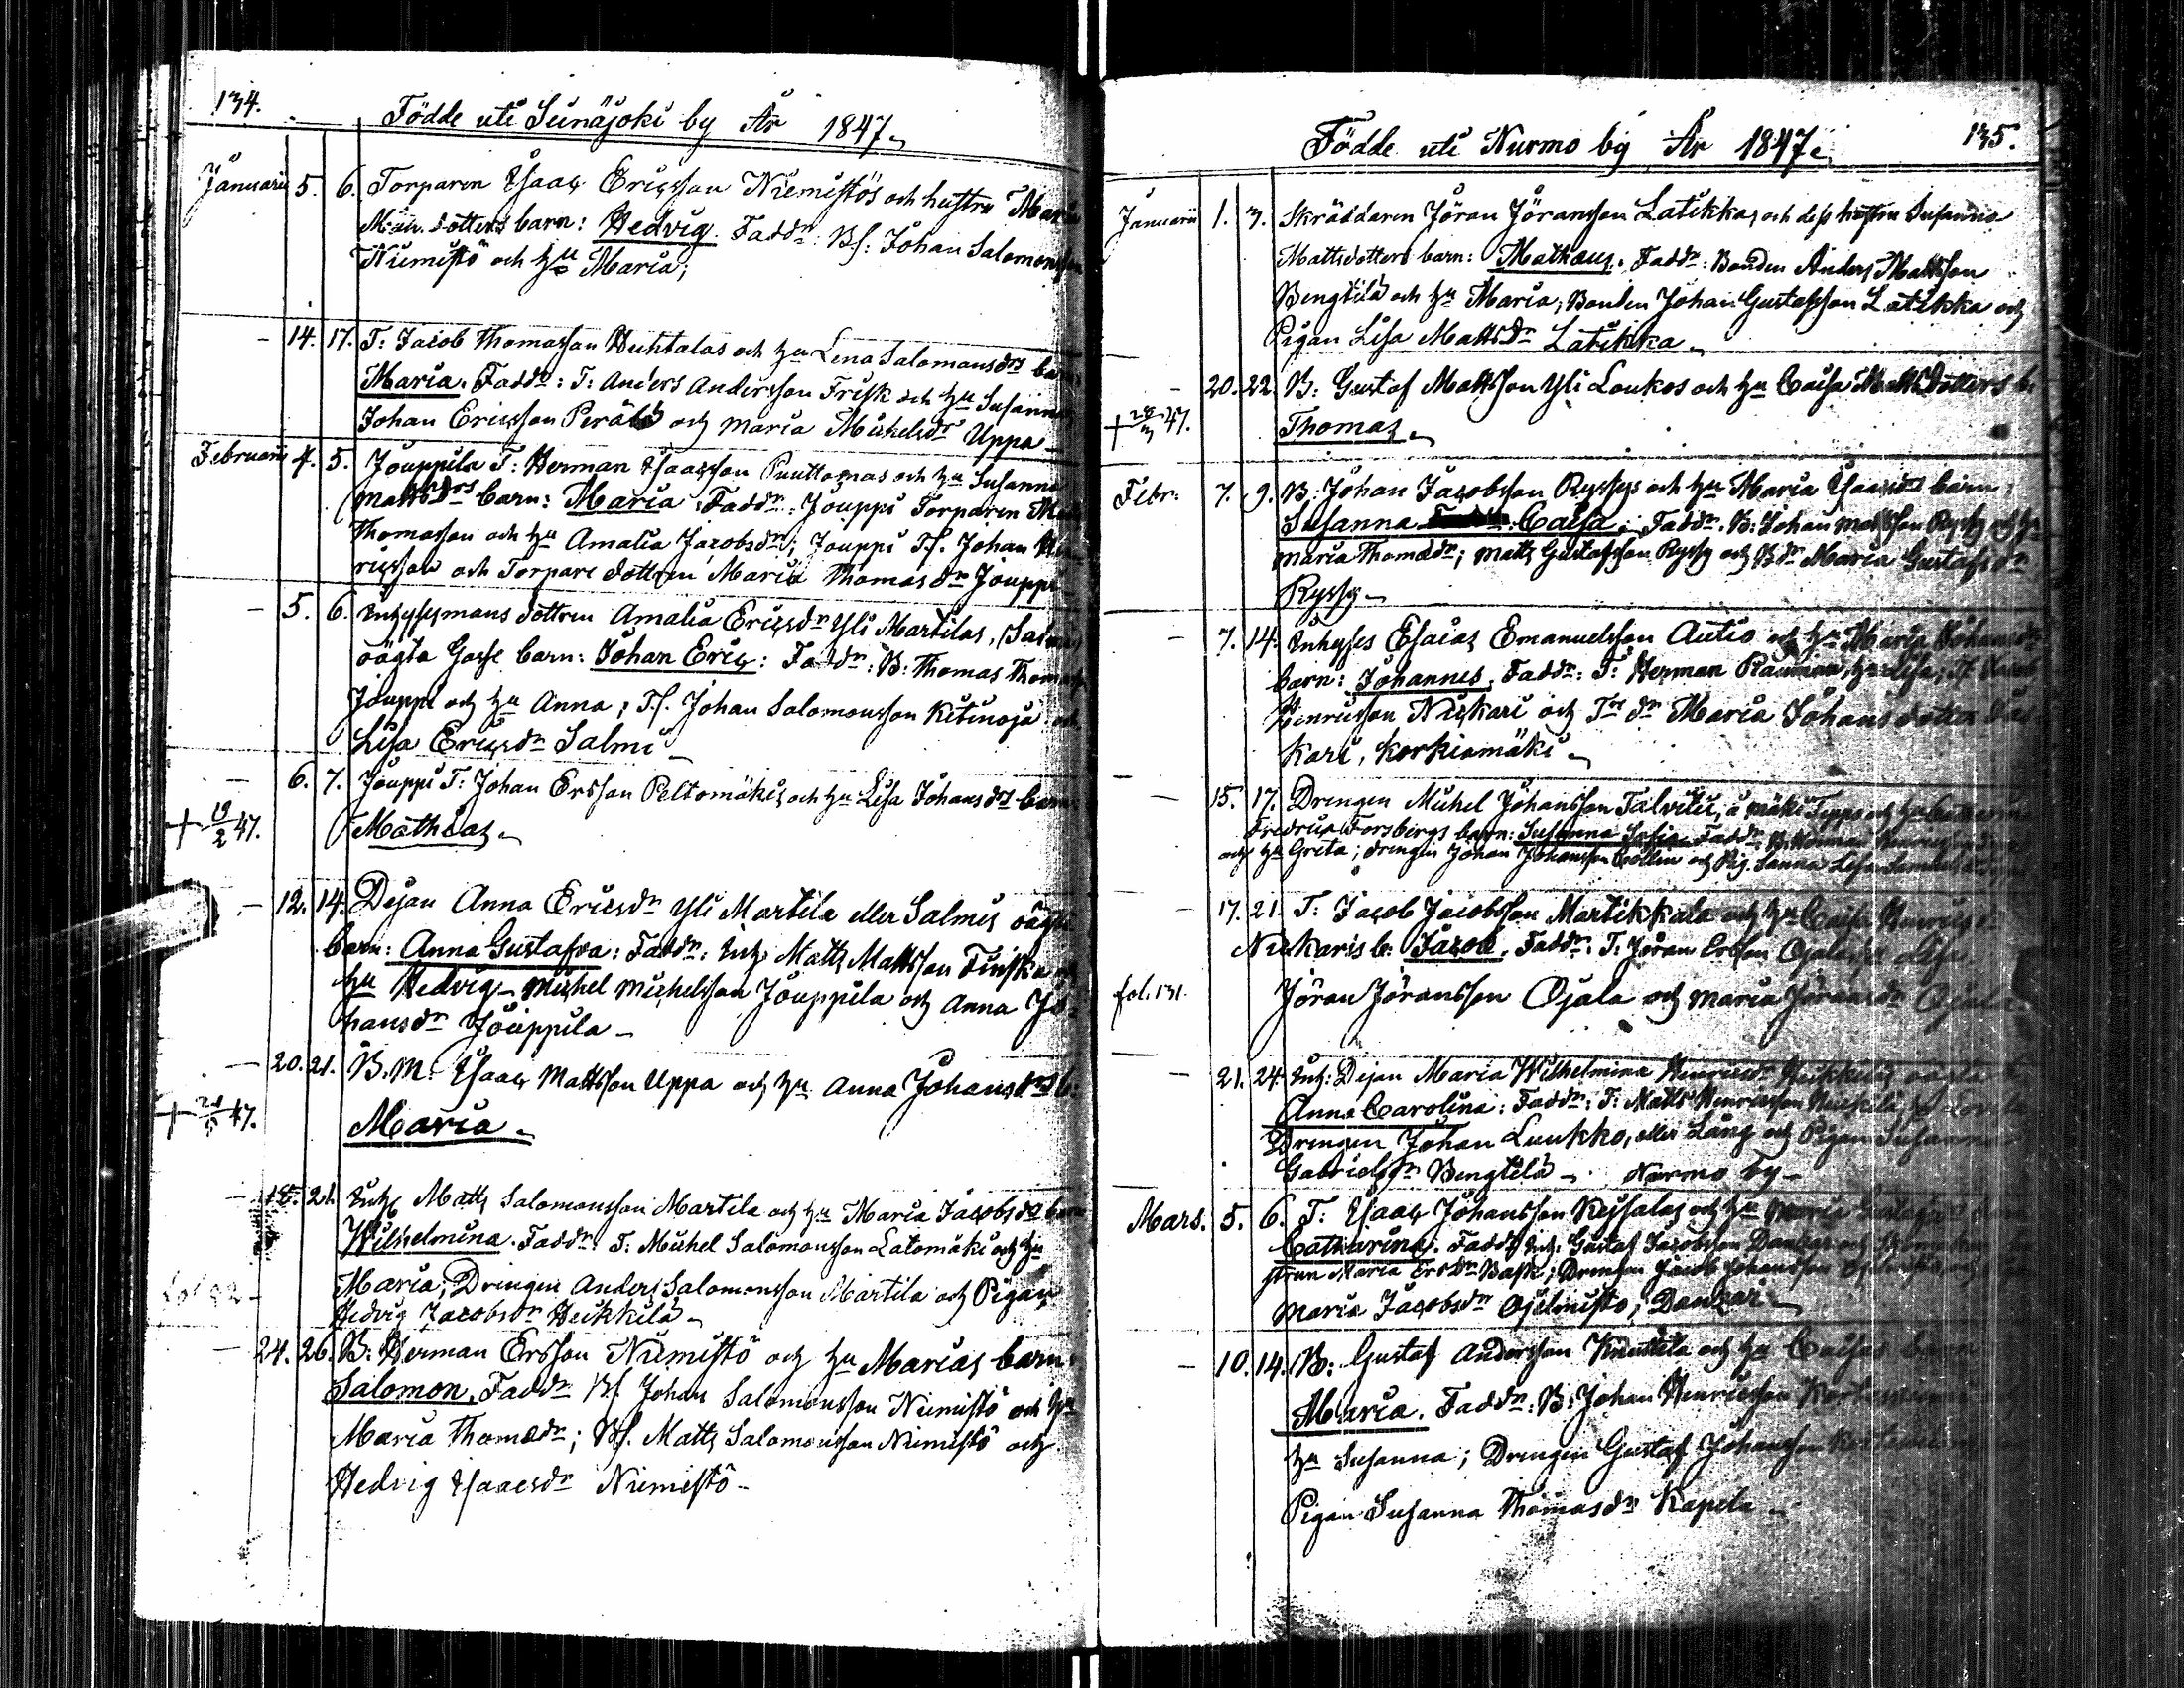 134.
Födde uti Seinäjoki by År 1847.
Januarii 5. 6. Torparen Isaac Ericsson Niemistös och hustru Maria
dotters barn: Hedvig. Faddr: Bs. Johan Salomonsson
Niemistö och hu Maria;
- 14. 17. T: Jacob Thomasson Huhtalas och hu Lena Salomonsdrs barn
Maria. Faddr: T: Anders Andersson Frisk och hu Susanna
Johan Ericsson Perälä och Maria Michelsdr Uppa -
Februarii 4. 5. Jouppila T: Herman Isaacsson Puuttomas och hu Susanna
Mattsdrs barn: Maria. Faddr: Jouppi Torparen
Thomasson och hu Amalia Jacobsdr; Jouppi Ts. Johan Hen
ricsson och Torpare dottren Maria Thomasdr Jouppi
- 5. 6. Inhysesmans dottren Amalia Ericsdr Yli Martilas, (Salmi)
oägta Gosse barn: Johan Eric: Faddr: B: Thomas Thomass
Jouppi och hu Anna; Ts. Johan Salomonsson Kitinoja och
Lisa Ericsdr Salmi -
- 6. 7. Jouppi T: Johan Ersson Peltomäkis och hu Lisa Johansdrs barn
+ 19/2 47. Mathias.
- 12. 14. Dejan Anna Ericsdr Yli Martila eller Salmis oägta
barn: Anna Gustafva: Faddr: Inh. Matts Mattsson Finska och
hu Hedvig - Michel Michelsson Jouppila och Anna Jo-
hansdr Jouppila -
- 20. 21. B.M: Isaac Mattsson Uppa och hu Anna Johansdrs b.
+ 47. Maria.
- 18. 21. Inh. Matts Salomonsson Martila och hu Maria Jacobsdr barn
Wilhelmina. Faddr: T: Michel Salomonsson Latomäki och hu
Maria; Drengen Anders Salomonsson Martila och Pigan
Hedvig Jacobsdr Heikkilä -
- 24. 26. B: Herman Ersson Niemistö och hu Marias barn
Salomon. Faddr Bs. Johan Salomonsson Niemistö och hu
Maria Thomasdr; Bs. Matts Salomonsson Niemistö och
Hedvig Isaacsdr Niemistö -
Födde uti Nurmo by År 1847. 135.
Januarii 1. 3. Skräddaren Jöran Jöransson Latikkas och dess hustru Susanna
Mattsdotters barn: Mathæus. Faddr: Bonden Anders Mattsson
Bengtilä och hu Maria; Bonden Johan Gustafsson Latikka och
Pigan Lisa Mattsdr Latikka.
- 20. 22. B: Gustaf Mattsson Yli Loukos och hu Caisa Mattsdotters b.
+ 47. Thomas.
Febr: 7. 9. B: Johan Jacobsson Ryssys och hu Maria Isaacsdrs barn
Susanna Caisa. Faddr. B: Johan Mattsson Ryssy och hu
Maria Thomasdr; Matts Gustafsson Ryssy och Bdr Maria Gustafsdr
Ryssy -
- 7. 14. Inhyses Esaias Emanuelsson Autio och hu Maria Johansdr
barn: Johannes. Faddr: T: Herman
Henricsson Niskari och Tre dr Maria Johans dotter
kari, Korkiamäki -
- 15. 17. Drengen Michel Johansson Talvitie, å mäki Seppo och hu Catharina
Fredrica Forsbergs barn: Susanna Sofia. Faddr: B. Herman
och hu Greta; Drengen Johan Johansson Collin och Pig. Sanna Lisa
- 17. 21. T: Jacob Jacobsson Martikkala och hu Caisa Henricsdr
Niskaris b: Jacob. Faddr: T: Jöran Ersson Ojala hu Lisa
fol. 131. Jöran Jöransson Ojala och Maria Jöransdr Ojala
- 21. 24. Inh: Dejan Maria Wilhelmina Henricsdr Heikkiläs oägta
Anna Carolina: Faddr: T: Matts Henricsson Heikkilä
Drengen Johan Luukko, eller Lång och Pigan Susanna
Gabrielsdr Bengtilä - Nurmo by -
Mars. 5. 6. T: Isaac Johansson Keisalas och hu Maria
Catharina. Faddr Inh. Gustaf Jacobsson
strun Maria Ersdr Bask; Drengen Jacob Johansson
Maria Jacobsdr
- 10. 14. B: Gustaf Andersson Knuttila och hu Caisas barn
Maria. Faddr: B: Johan Henricsson
hu Susanna; Drengen Gustaf Johansson
Pigan Susanna Thomasdr Kapila -